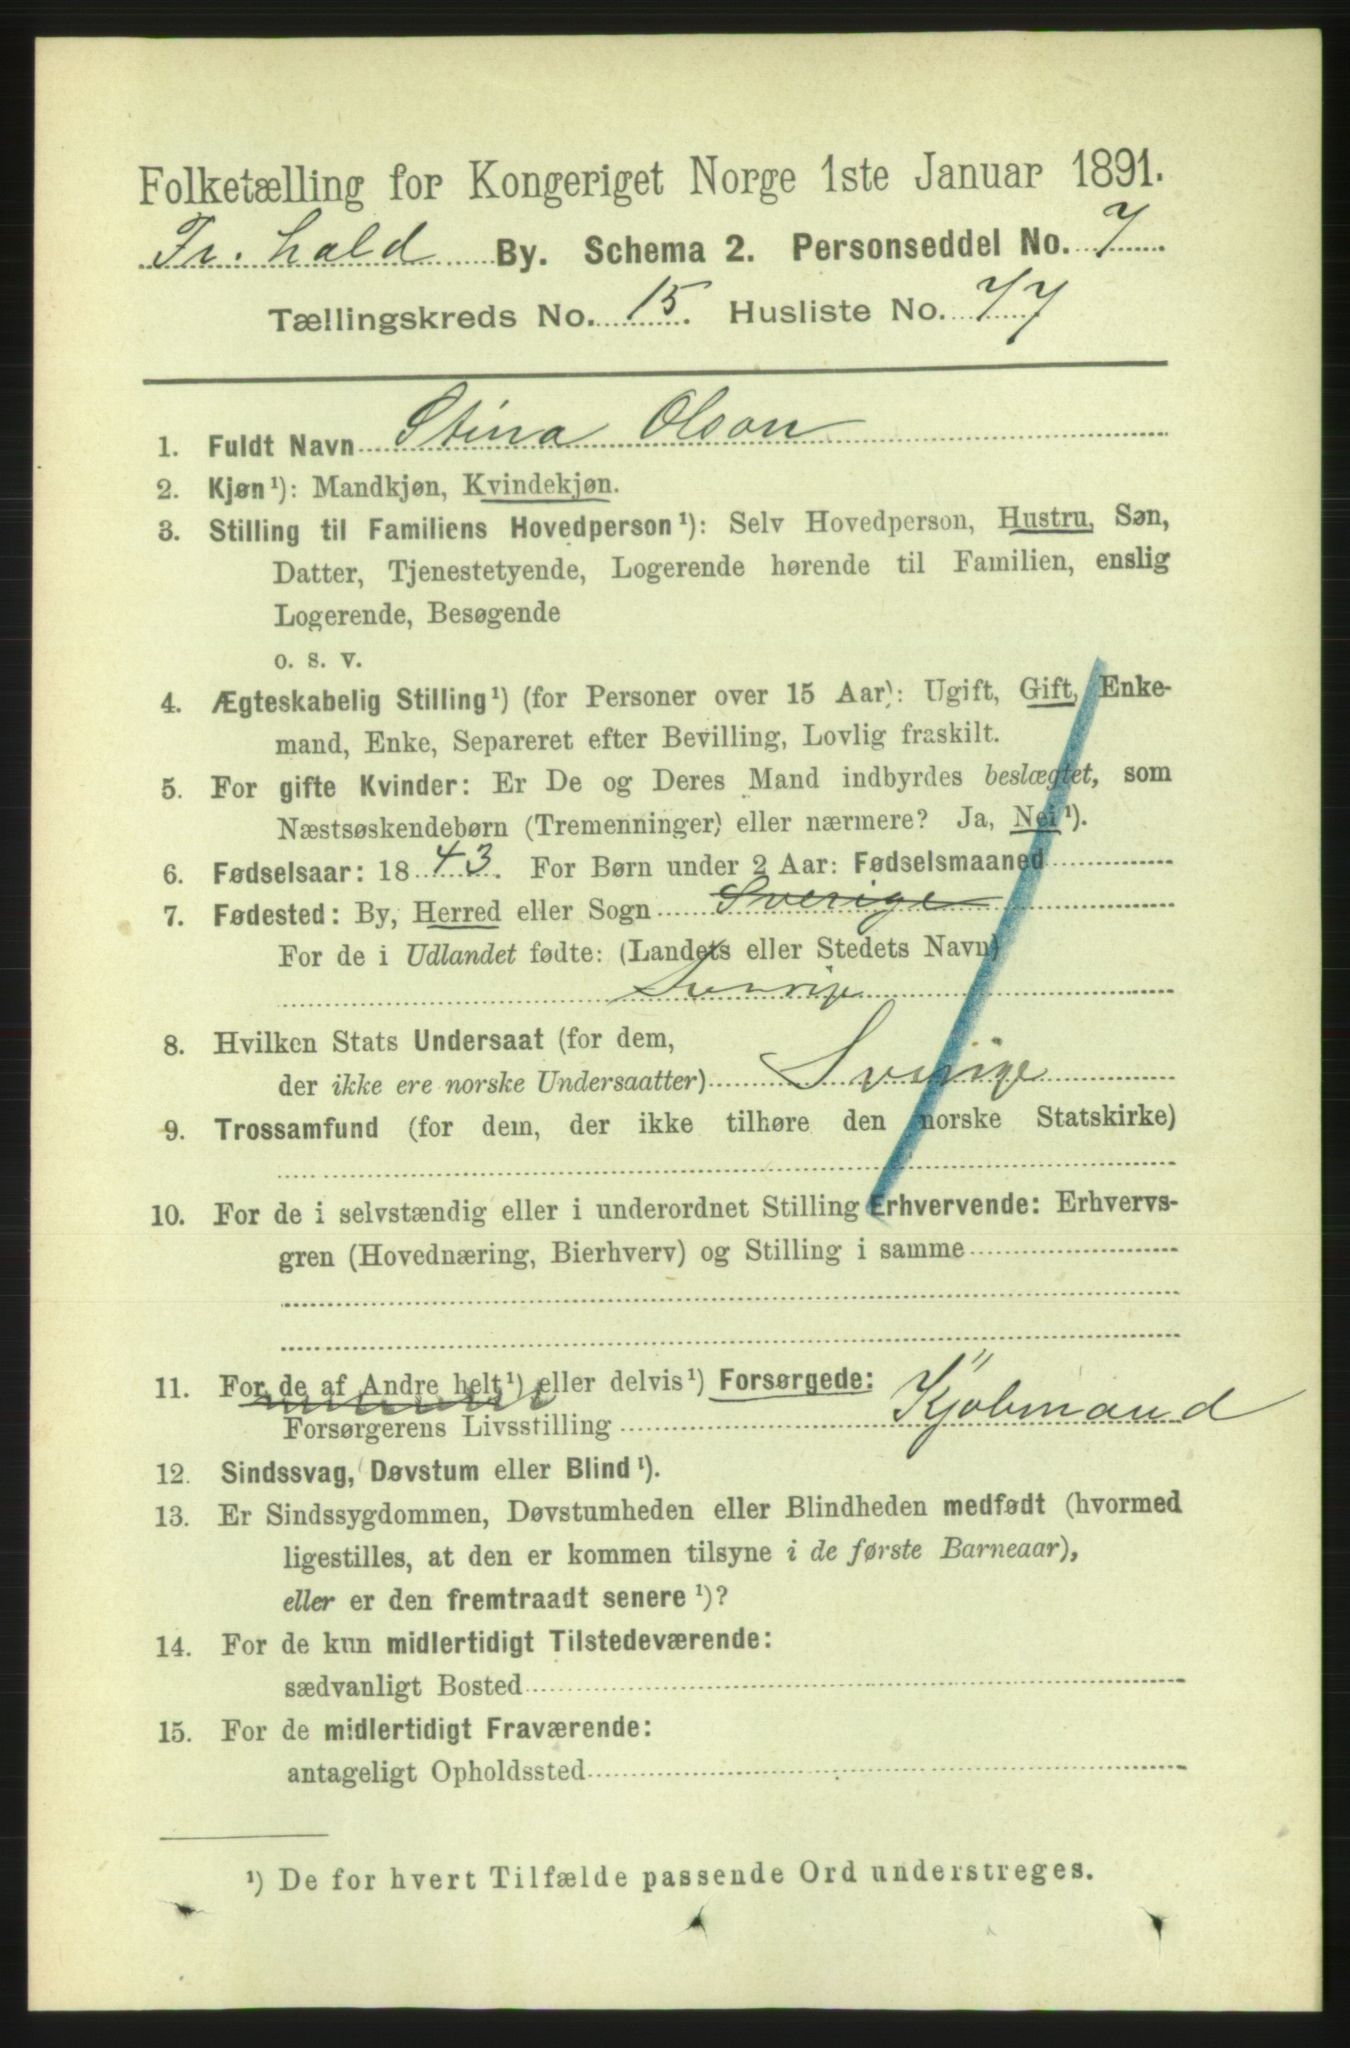 Folketælling for Kongeriget Norge 1ste Januar 1891.
Fr. hald By. Schema 2. Personseddel No. 7
Tællingskreds No. 15. Husliste No. 77
1. Fuldt Navn Stina Olson
2. Kjøn¹): Mandkjøn, Kvindekjøn.
3. Stilling til Familiens Hovedperson¹): Selv Hovedperson, Hustru, Søn,
Datter, Tjenestetyende, Logerende hørende til Familien, enslig
Logerende, Besøgende
o. s. v.
4. Ægteskabelig Stilling¹) (for Personer over 15 Aar): Ugift, Gift, Enke-
mand, Enke, Separeret efter Bevilling, Lovlig fraskilt.
5. For gifte Kvinder: Er De og Deres Mand indbyrdes beslægtet, som
Næstsøskendebørn (Tremenninger) eller nærmere? Ja, Nei¹).
6. Fødselsaar: 1843. For Børn under 2 Aar: Fødselsmaaned
7. Fødested: By, Herred eller Sogn Sverige
For de i Udlandet fødte: (Landets eller Stedets Navn)
Sverige
8. Hvilken Stats Undersaat (for dem,
der ikke ere norske Undersaatter) Sverige
9. Trossamfund (for dem, der ikke tilhøre den norske Statskirke)
10. For de i selvstændig eller i underordnet Stilling Erhvervende: Erhvervs-
gren (Hovednæring, Bierhverv) og Stilling i samme
11. For de af Andre helt¹) eller delvis¹) Forsørgede:
Forsørgerens Livsstilling Kjøbmand
12. Sindssvag, Døvstum eller Blind¹).
13. Er Sindssygdommen, Døvstumheden eller Blindheden medfødt (hvormed
ligestilles, at den er kommen tilsyne i de første Barneaar),
eller er den fremtraadt senere¹)?
14. For de kun midlertidigt Tilstedeværende:
sædvanligt Bosted
15. For de midlertidigt Fraværende:
antageligt Opholdssted
¹) De for hvert Tilfælde passende Ord understreges.